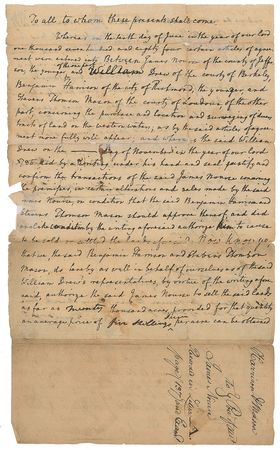 To all to whom these presents shall come
Whereas on the tenth day of June in the year of our lord
one thousand seven hundred and eighty four certain articles of agree
ment were entered into Between James Nourse of the county of Jeffer
son, the younger and William Drew of the county of Berkeley
Benjamin Harrison of the city of Richmond, the younger, and
Stevens Thomson Mason of the county of Loudoun, of the other
part, concerning the purchase and location and surveying of divers
tracts of land on the western waters, as by the said articles of agree
ment more fully will appear, and whereas the said William
Drew on the day of November in the year of our Lord
1785 did by a writing under his hand and seal ratify and
confirm the transactions of the said James Nourse concerning
the premises, in certain alterations and sales made by the said
James Nourse, on condition that the said Benjamin Harrison and
Stevens Thomson Mason should approve thereof and did
by the writing aforesaid authorize him to cause
to be sold or settled the lands aforesaid. Now know ye
that we, the said Benjamin Harrison and Stevens Thomson
Mason, do hereby as well in behalf of ourselves as of the said
William Drew's representatives, by virtue of the writing afore
said, authorize the said James Nourse to sell the said lands
as far as twenty thousand acres, provided for that quantity
an average price of five shillings per acre can be obtained
Harrison & Mason
To
James Nourse